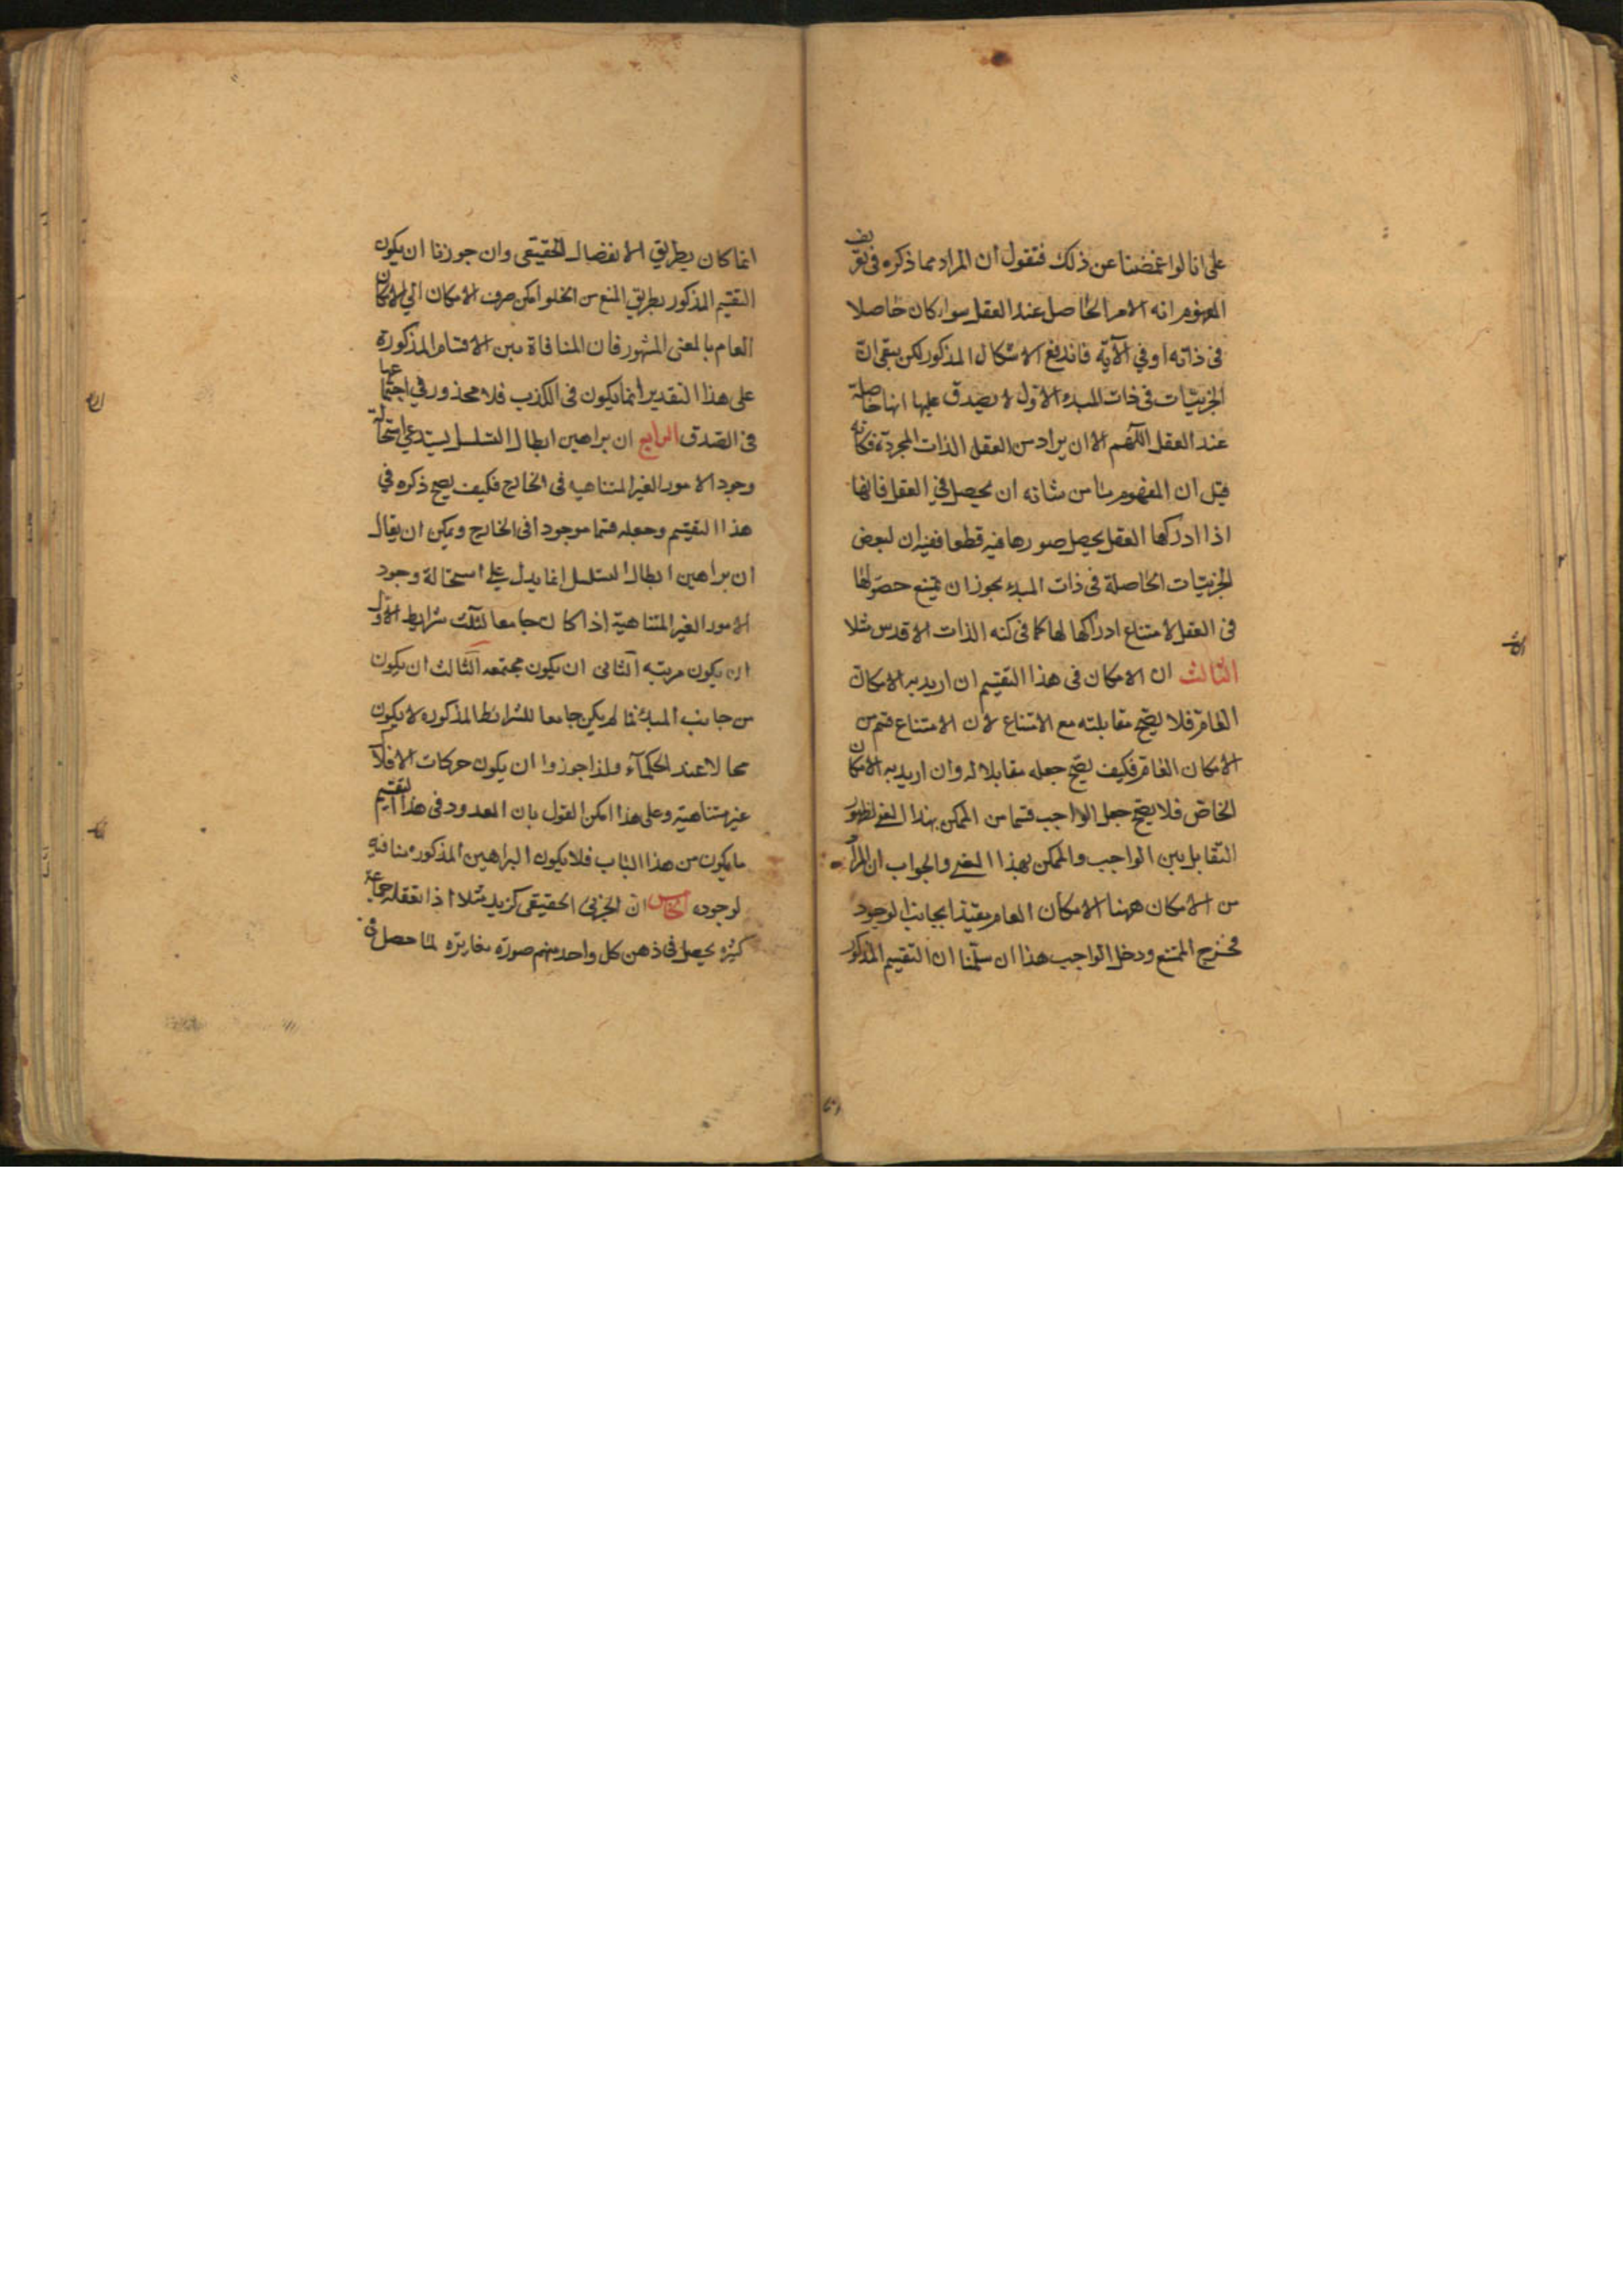 على انا لو اغمضنا عن ذلك فنقول ان المراد مما ذكره فى تعريف
المفهوم انه الامر الحاصل عند العقل سواء كان حاصلا
فى ذاته او في الآية فاندفع الاشكال المذكور لكن يبقى انّ
الجزئيّات فى ذات المبدء الاوّل لا يصدق عليها انها حاصلة
عند العقل اللّهم الا ان يراد من العقل الذات المجردة فكانه
قيل ان المفهوم ما من شانه ان يحصل في العقل فانها
اذا ادركها العقل يحصل صورها فيه قطعا ففيه ان لبعض
الجزئيّات الحاصلة فى ذات المبدء يجوز ان يمتنع حصولها
فى العقل لامتناع ادراكها لها كما فى كنه الذات الاقدس مثلا
الثالث ان الامكان فى هذا التقسيم ان اريد به الامكان
العام فلا يصحّ مقابلته مع الامتناع لان الامتناع قسم من
الامكان العام فكيف يصحّ جعله مقابلا له وان اريد به الامكان
الخاصّ فلا يصحّ جعل الواجب قسما من الممكن بهذا المعنى لظهور
التقابل بين الواجب والممكن بهذا المعنى والجواب ان المراد
من الامكان ههنا الامكان العام مقيّدا بجانب الوجود
فخرج الممتنع ودخل الواجب هذا ان سلّمنا ان التقسيم المذكور
انما كان بطريق الانفصال الحقيقى وان جوزنا ان يكون
التقسيم المذكور بطريق المنع من الخلو امكن صرف الامكان الي الامكان
العام بالمعنى المشهور فان المنافاة بين الاقسام المذكورة
على هذا التقدير انما يكون فى الكذب فلا محذور في اجتماعها
فى الصّدق الرابع ان براهين ابطال التسلسل يستدعي استحالة
وجود الامور الغير المتناهيه فى الخارج فكيف يصح ذكره في
هذا التقسيم وجعله قسما موجودا فى الخارج ويمكن ان يقال
ان براهين ابطال التسلسل انما يدل على استحالة وجود
الامور الغير المتناهية اذا كان جامعا لثلث شرايط الاوّل
ان يكون مرتبه الثانى ان يكون مجتمعه الثالث ان يكون
من جانب المبدء فما لم يكن جامعا للشرائط المذكوره لا يكون
محالا عند الحكمآء ولذا جوزوا ان يكون حركات الافلاك
غير متناهية وعلى هذا امكن القول بان المعدود فى هذا التقسيم
ما يكون من هذا الباب فلا يكون البراهين المذكوره منافيه
لوجوده الخامس ان الجزئى الحقيقى كزيد مثلا اذا تعقله جماعة
كثيره يحصل فى ذهن كل واحد منهم صورة مغايرة لما حصل فى